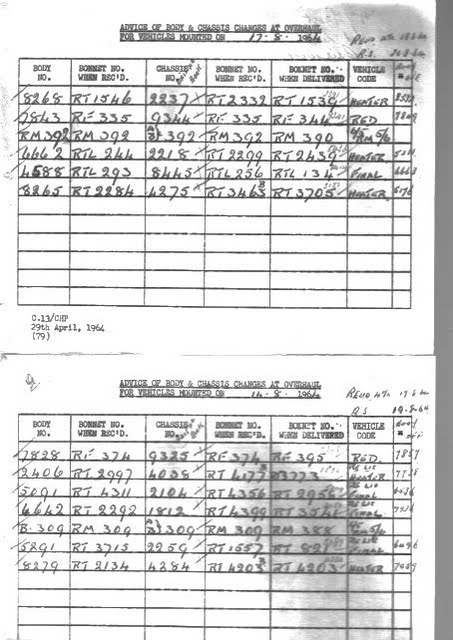 ADVICE OF BODY & CHASSIS CHANGES AT OVERHAUL
FOR VEHICLES MOUNTED ON 17-8- 1964
BODY NO. BONNET NO. WHEN REC'D. CHASSIS NO. BONNET NO. WHEN REC'D. BONNET NO. WHEN DELIVERED VEHICLE CODE
8268 RT 1546 2237 RT 2332 RT 1539 HEATER
7843 RF 335 9344 RF 335 RF 346 RED
RM 392 RM 392 392 RM 392 RM 390 RM 5/6
6662 RTL 244 2218 RT 2299 RT 2439 HEATER
4588 RTL 293 8445 RTL 256 RTL 134 FINAL
8265 RT 2284 4275 RT 3463 RT 3705 HEATER 6176
C.13/CHP
29th April, 1964
(79)
ADVICE OF BODY & CHASSIS CHANGES AT OVERHAUL
FOR VEHICLES MOUNTED ON 14-8- 1964
R.S 19-8-64
BODY NO. BONNET NO. WHEN REC'D. CHASSIS NO. BONNET NO. WHEN REC'D. BONNET NO. WHEN DELIVERED VEHICLE CODE
7828 RF 374 9325 RF 374 RF 395 RED 7857
2406 RT 2997 4038 RT 4177 3773 HEATER
5091 RT 4311 2104 RT 4356 FINAL
6642 RT 2292 1812 RT 4399 RT 354 FINAL
B.309 RM 309 309 RM 309 RM 388 5/6
5291 RT 3715 2259 RT 1557 RT 82 FINAL
8279 RT 2134 4284 RT 4203 RT 4203 HEATER